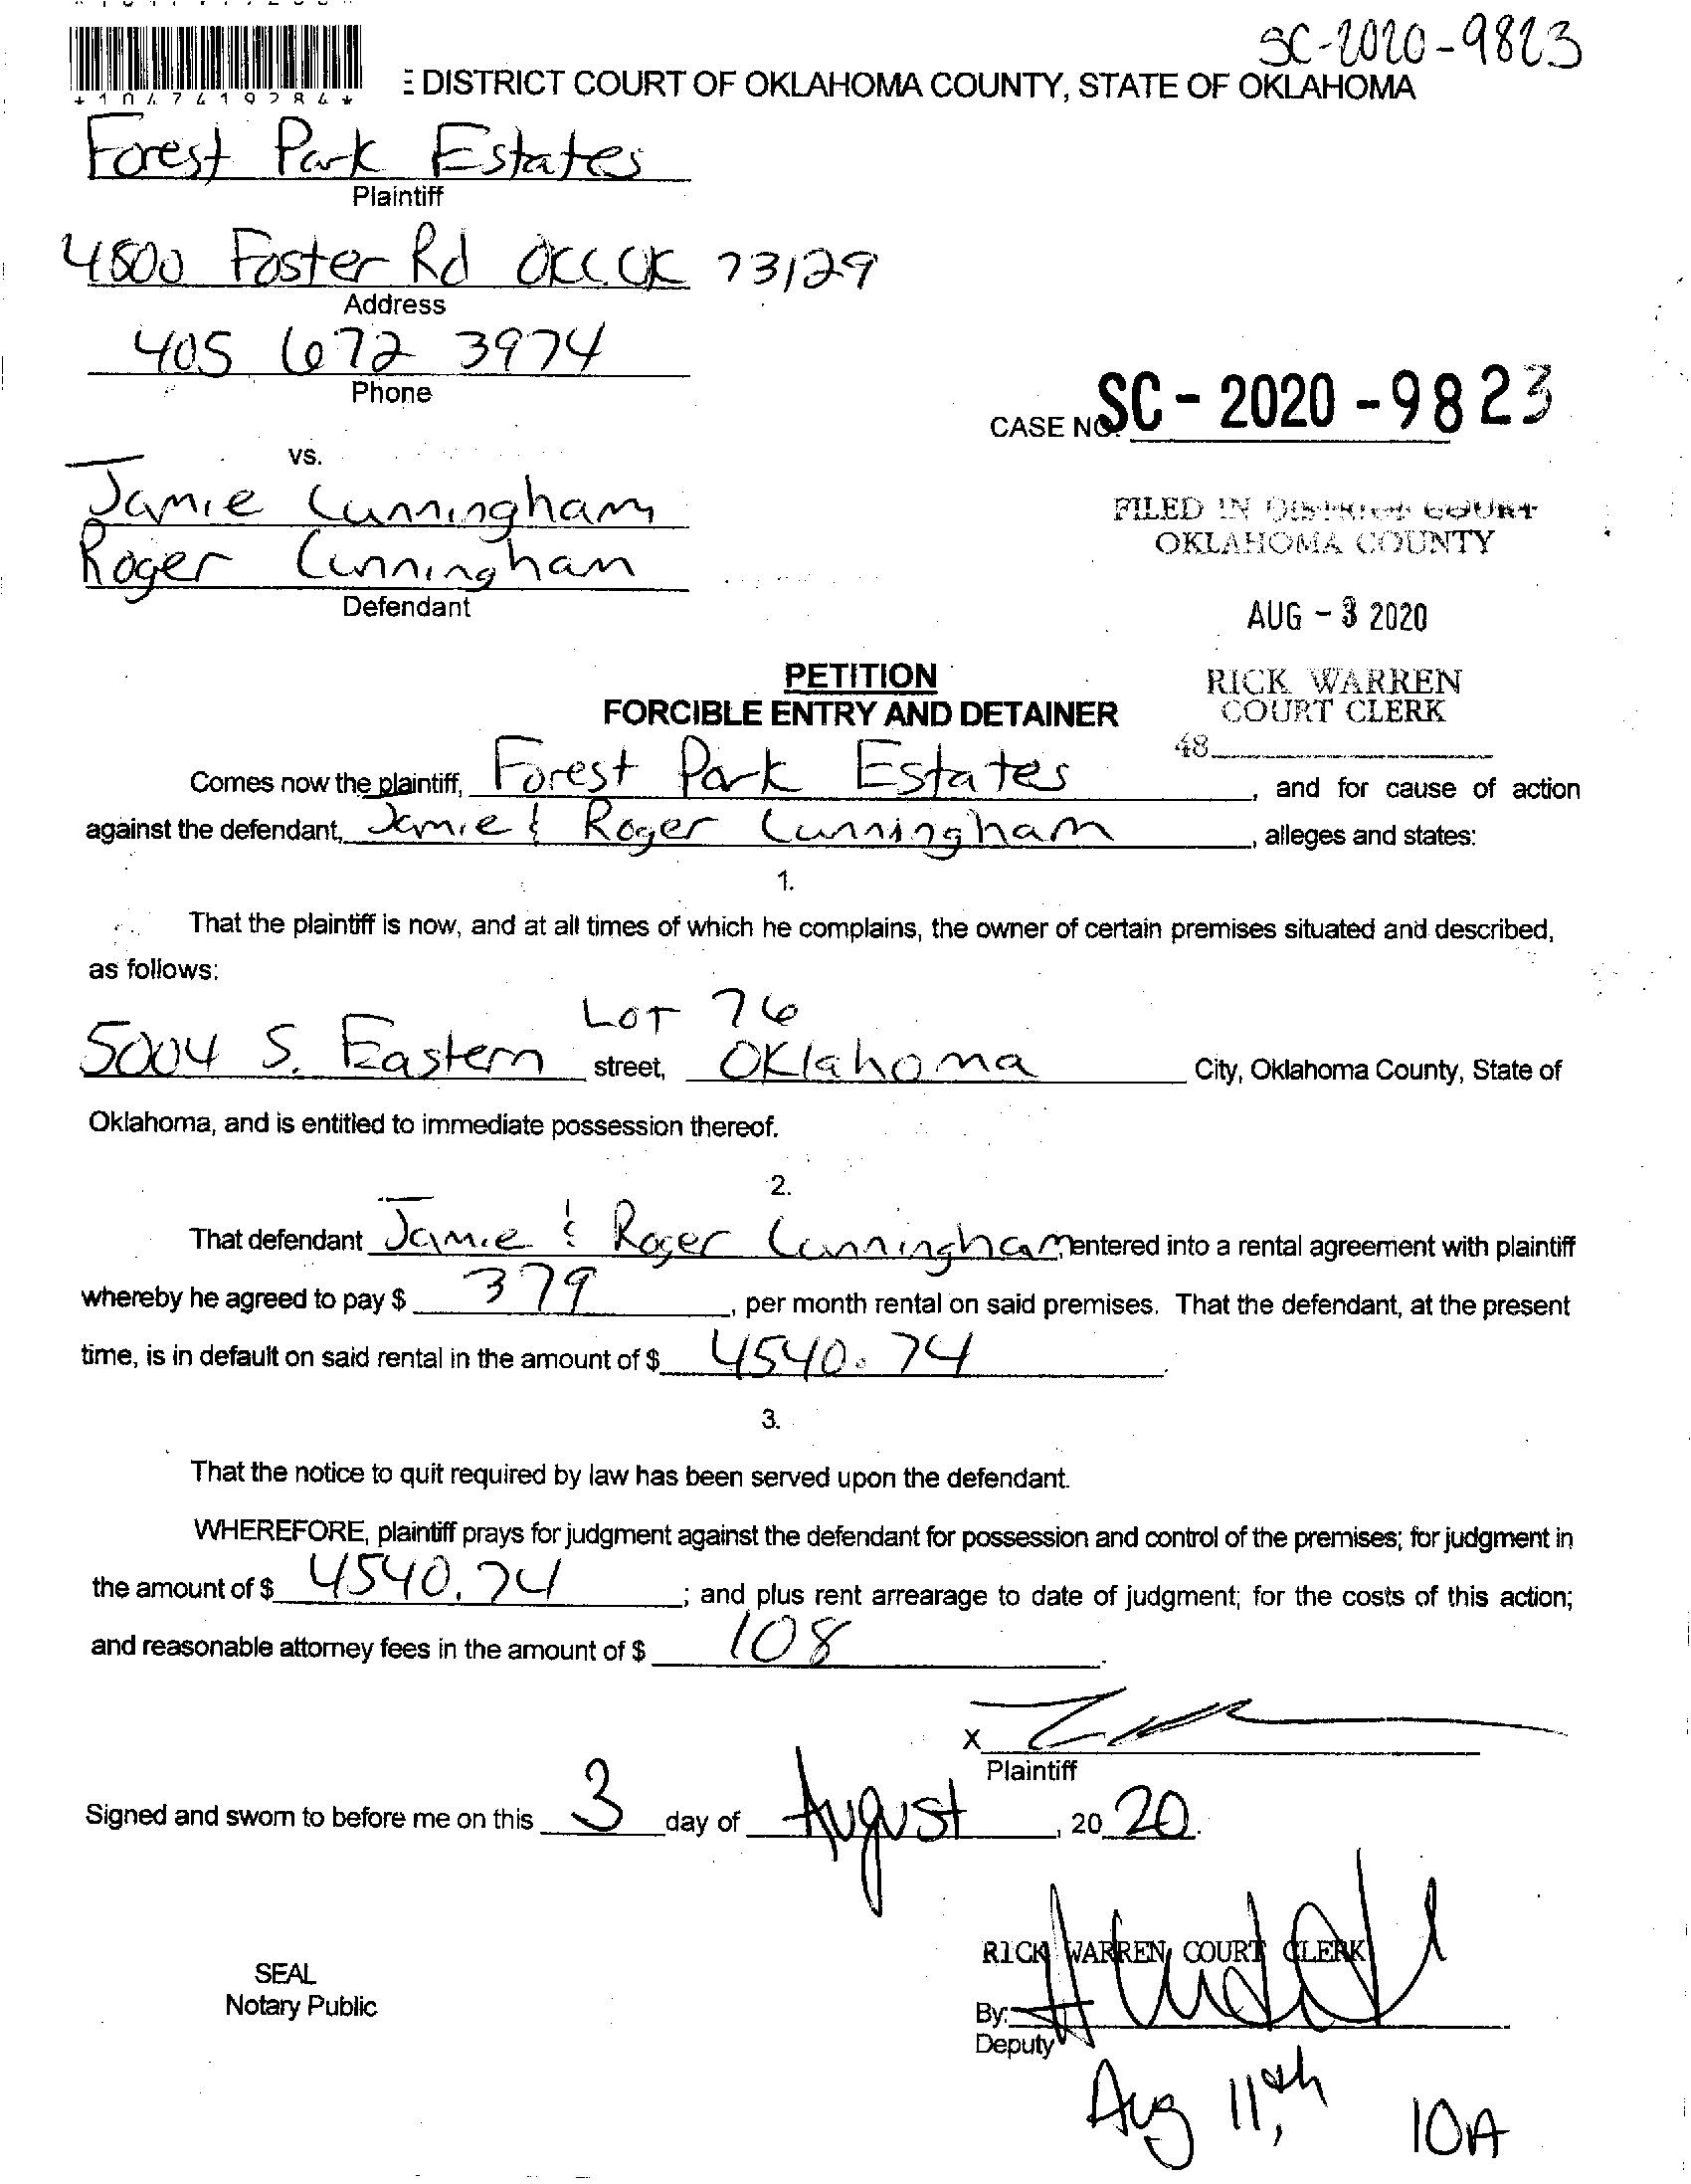 SC-2020-9823
DISTRICT COURT OF OKLAHOMA COUNTY, STATE OF OKLAHOMA
*1047419284*
Forest Park Estates
Plaintiff
4800 Foster Rd OKC OK 73129
Address
405 672 3974
Phone
CASE NO. SC-2020-9823
vs.
Jamie Cunningham
Roger Cunningham
Defendant
FILED IN DISTRICT COURT
OKLAHOMA COUNTY
AUG - 3 2020
RICK WARREN
COURT CLERK
48
PETITION
FORCIBLE ENTRY AND DETAINER
Comes now the plaintiff, Forest Park Estates, and for cause of action
against the defendant, Jamie & Roger Cunningham, alleges and states:
1.
That the plaintiff is now, and at all times of which he complains, the owner of certain premises situated and described,
as follows:
LOT 76
5004 S. Eastern street, Oklahoma City, Oklahoma County, State of
Oklahoma, and is entitled to immediate possession thereof.
2.
That defendant Jamie & Roger Cunningham entered into a rental agreement with plaintiff
whereby he agreed to pay $ 379, per month rental on said premises. That the defendant, at the present
time, is in default on said rental in the amount of $ 4540.74.
3.
That the notice to quit required by law has been served upon the defendant.
WHEREFORE, plaintiff prays for judgment against the defendant for possession and control of the premises; for judgment in
the amount of $ 4540.74; and plus rent arrearage to date of judgment; for the costs of this action;
and reasonable attorney fees in the amount of $ 108.
X
Plaintiff
Signed and sworn to before me on this 3 day of August, 2020.
RICK WARREN, COURT CLERK
SEAL
Notary Public
By:
Deputy
Aug 11th, 10A